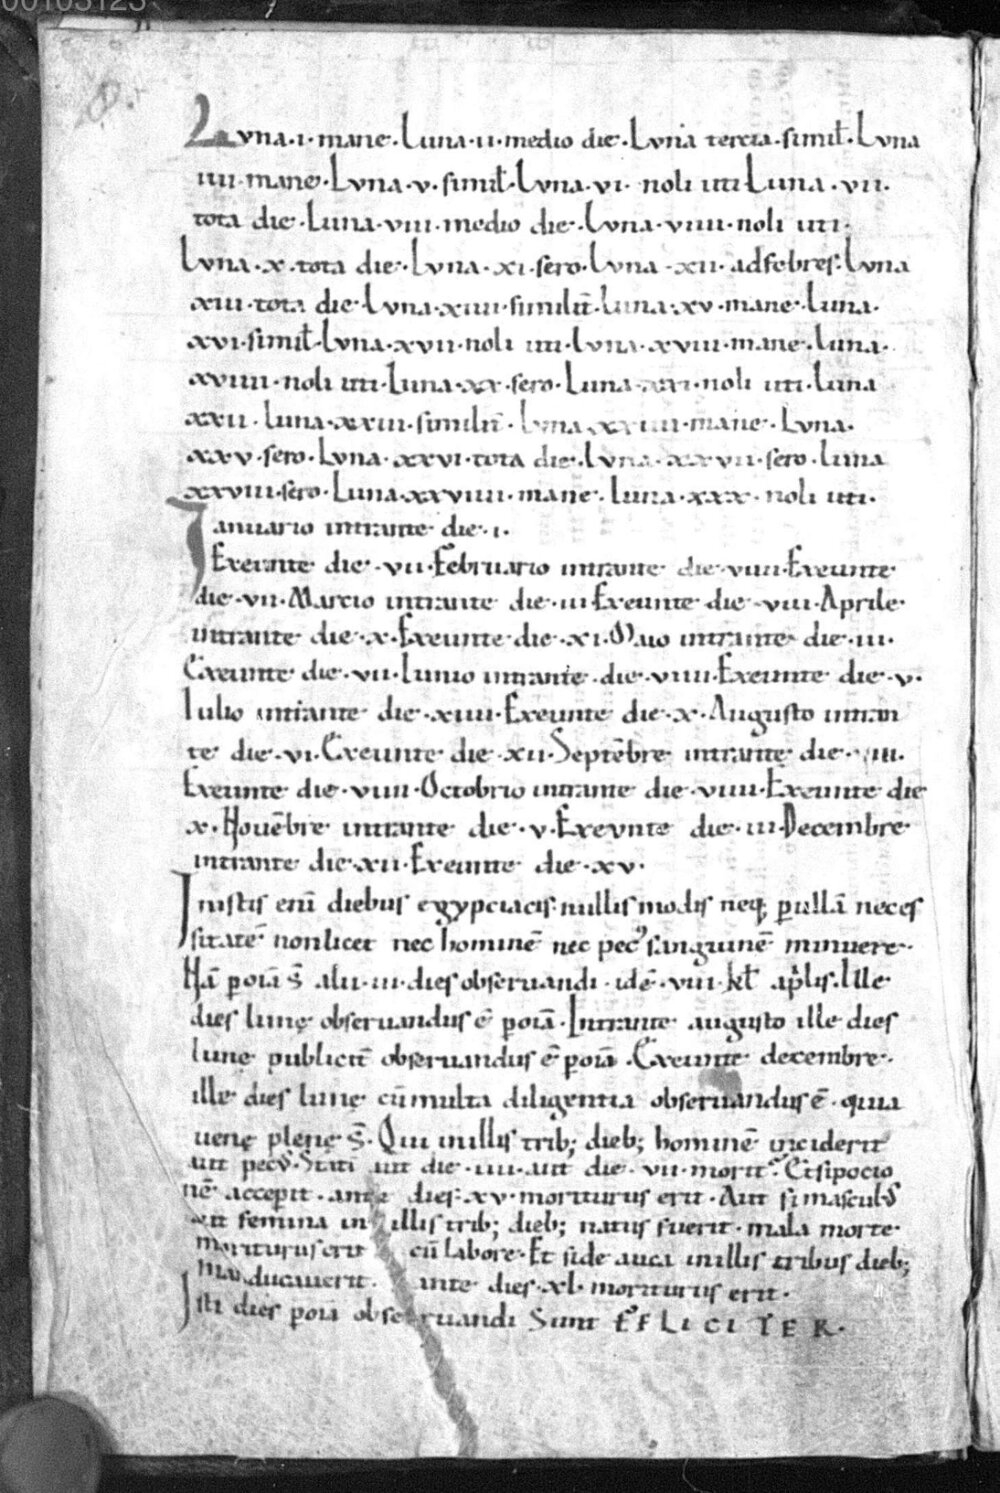 00103123
Luna·i·mane·Luna·ii·medio die·Luna tercia·simił·Luna
iiii·mane·Luna·v·simił·Luna·vi· noli uti Luna·vii·
tota die·Luna·viii·medio die·Luna·viiii·noli uti·
Luna·x·tota die·Luna·xi·sero·Luna·xii·adfebres·Luna
xiii·tota die·Luna·xiiii·similit̄·Luna·xv·mane·Luna·
xvi·simił·Luna·xvii·noli uti·Luna·xviii·mane·Luna·
xviiii·noli uti·Luna·xx·sero·Luna·xxi·noli uti·Luna
xxii·Luna·xxiii·similit̄·Luna·xxiiii·mane·Luna·
xxv·sero·Luna·xxvi·tota die·Luna·xxvii·sero·Luna
xxviii·sero·Luna·xxviiii·mane·Luna·xxx·noli uti·
Ianuario intrante die·i·
Exeunte die·vii·Februario intrante die·viiii·Exeunte
die·vii·Marcio intrante die·iii Exeunte die·viii·Aprile
intrante die·x·Exeunte die·xi·Maio intrante die·iii·
Exeunte die·vii·Iunio intrante·die·viiii·Exeunte die·v·
Iulio intrante die·xiiii·Exeunte die·x·Augusto intran
te die·vi·Exeunte die·xii·Septēbre intrante die·iii·
Exeunte die·viiii·Octobrio intrante die·viiii·Exeunte die
x·Nouēbre intrante die·v·Exeunte die·iii·Decembre
intrante die·xii·Exeunte die·xv·
Inistis eni̅ diebus egypciacis·nullis modis neq; ꝑullā neces
sitatē nonlicet nec hominē nec pec᷒ sanguinē minuere·
Nā ꝑoīa s̄ alii·iii·dies obseruandi·idē·viii·kł apłis·Ille
dies lunę obseruandus ē ꝑoīa·Intrante augusto ille dies
lunę publicit̄ obseruandus ē ꝑoīa·Exeunte decembre·
ille dies lunę cū multa diligentia obseruandus ē·quia
uenę plenę s̄·Qui inillis trib; dieb; hominē inciderit
aut Stati aut die·iiii·aut die·vii·morit᷒·Et sipocio
nē acceperit·ante dies·xv·moriturus erit·Aut si masculꝰ
aut femina in illis trib; dieb; natus fuerit·mala morte
moriturus erit cū labore·Et side auca inillis tribus dieb;
manducauerit· ante dies·xl·moriturus erit·
Isti dies ꝑoīa obseruandi Sunt FELICITER·